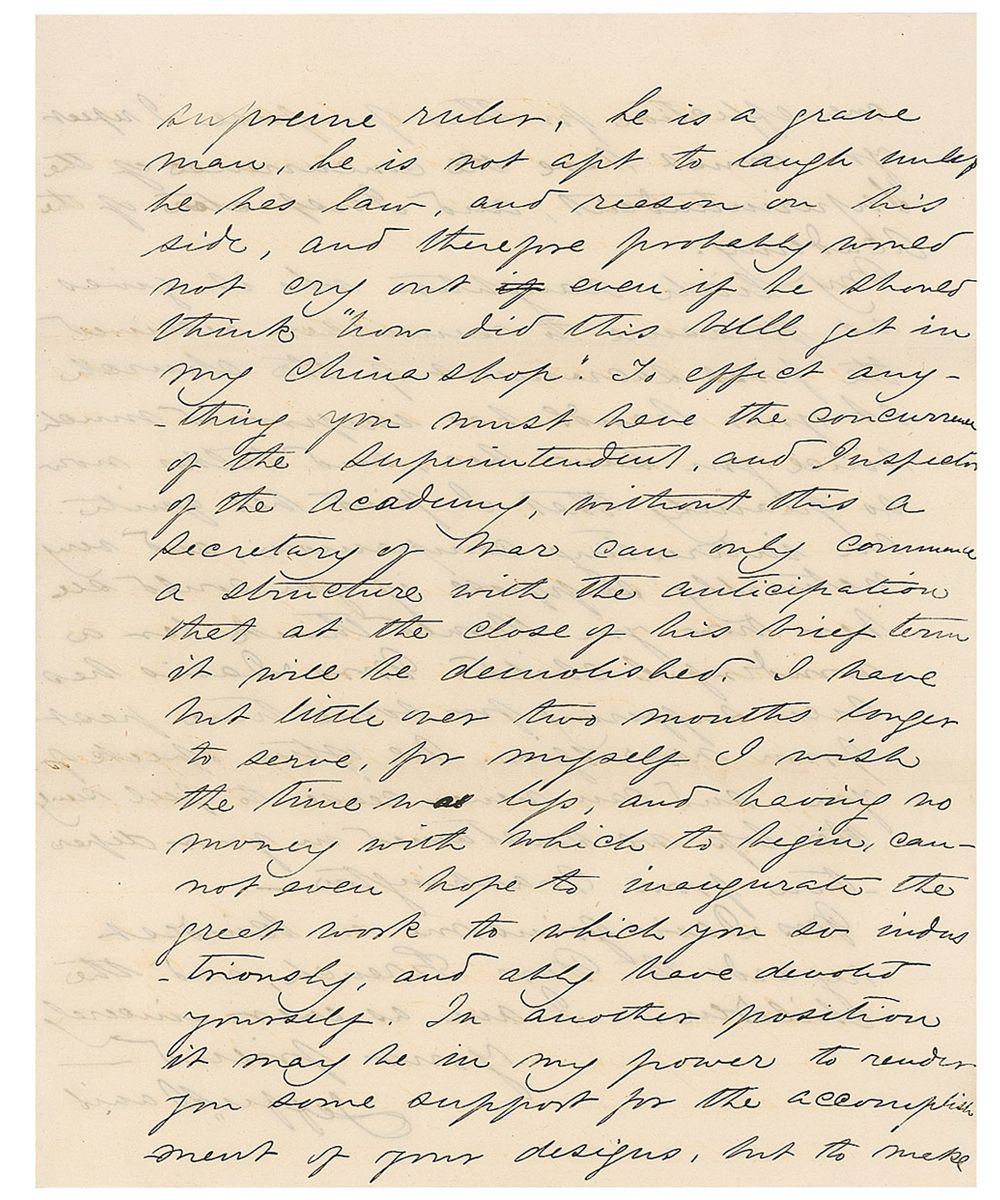 supreme ruler, he is a grave
man, he is not apt to laugh unless
he has law, and reason on his
side, and therefore probably would
not cry out if even if he should
think "how did this bull get in
my China shop". To effect any-
-thing you must have the concurrence
of the Superintendent, and Inspector
of the Academy, without this a
Secretary of War can only commence
a structure with the anticipation
that at the close of his brief term
it will be demolished. I have
but little over two months longer
to serve, for myself I wish
the time was up, and having no
money with which to begin, can-
not even hope to inaugurate the
great work to which you so indus
-triously, and ably have devoted
yourself. In another position
it may be in my power to render
you some support for the accomplish
-ment of your designs, but to make